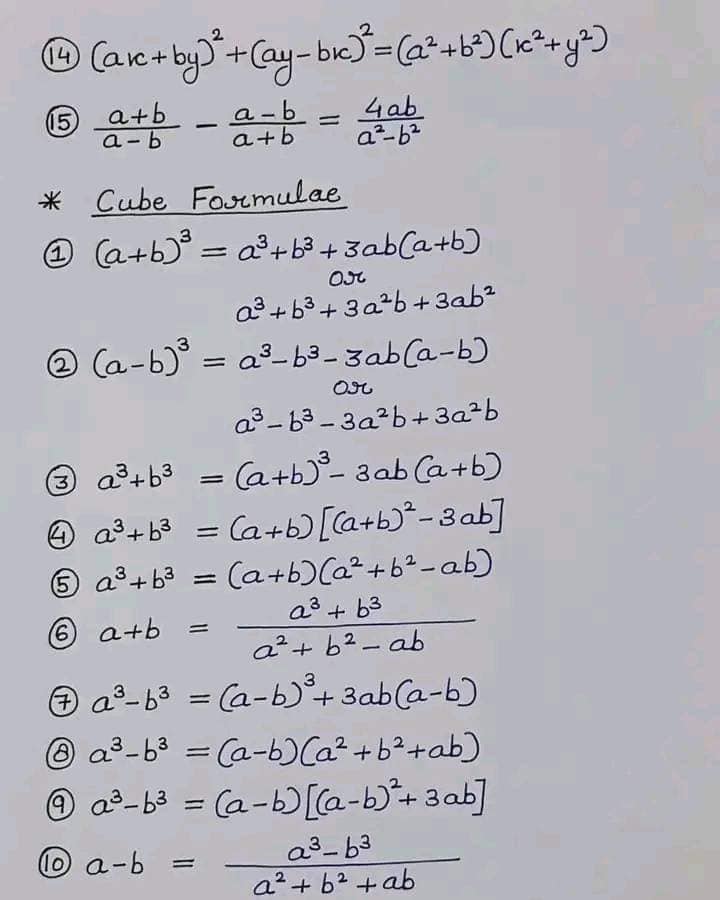 ⑭ (ax+by)²+(ay-bx)²=(a²+b²)(x²+y²)
⑮ a+b/a-b - a-b/a+b = 4ab/a²-b²
* Cube Formulae
① (a+b)³ = a³+b³+3ab(a+b)
or
a³+b³+3a²b+3ab²
② (a-b)³ = a³-b³-3ab(a-b)
or
a³-b³-3a²b+3a²b
③ a³+b³ = (a+b)³-3ab(a+b)
④ a³+b³ = (a+b)[(a+b)²-3ab]
⑤ a³+b³ = (a+b)(a²+b²-ab)
⑥ a+b = a³+b³/a²+b²-ab
⑦ a³-b³ = (a-b)³+3ab(a-b)
⑧ a³-b³ = (a-b)(a²+b²+ab)
⑨ a³-b³ = (a-b)[(a-b)²+3ab]
⑩ a-b = a³-b³/a²+b²+ab